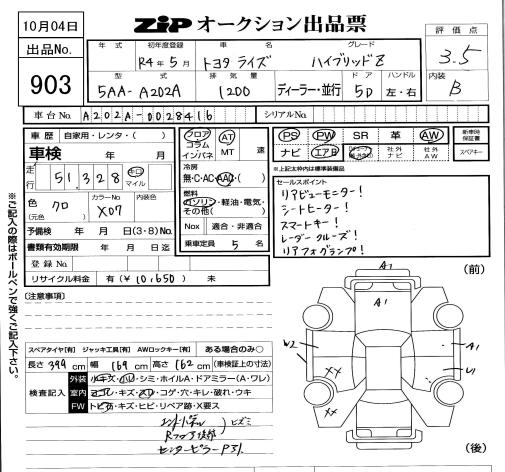 10月04日
ZIP オークション出品票
出品No.
903
年式
初年度登録
車名
グレード
R4年5月
トヨタ ライズ
ハイブリッドZ
型式
排気量
ドア
ハンドル
5AA-A202A
1200
ディーラー・並行
5D
左・右
評価点
3.5
内装
B
車台No.
A202A-0028416
シリアルNo.
車歴
自家用・レンタ・( )
車検 年 月
走行
51,328
キロ
マイル
色
クロ
(元色)
カラーNo
X07
内装色
予備検 年 月 日(3・8)No.
書類有効期限 年 月 日迄
登録No.
リサイクル料金 有(¥10,650) 未
フロア
コラム
インパネ
AT
MT
速
冷房
無・C・AC・AAC・( )
燃料
ガソリン・軽油・電気・
その他( )
Nox
適合・非適合
乗車定員 5名
PS
PW
SR
革
AW
新車時
保証書
ナビ
エアB
社外
ナビ
社外
AW
スペアキー
※上記太枠内は標準装備品
セールスポイント
リアビューモニター!
シートヒーター!
スマートキー!
レーダークルーズ!
リアフォグランプ!
※ご記入の際はボールペンで強くご記入下さい。
[注意事項]
スペアタイヤ[有] ジャッキ工具[有] AWロックキー[有] ある場合のみ○
長さ 399 cm 幅 169 cm 高さ 162 cm (車検証上の寸法)
検査記入
外装
小キズ・小U・シミ・ホイルA・ドアミラー(A・ワレ)
室内
ヨゴレ・キズ・スレ・コゲ・穴・キレ・破れ・ウキ
FW
トビA・キズ・ヒビ・リペア跡・X要ス
ヒズミ
センターピラーP
(前)
A1
A1
W2
A1
XX
U1
XX
(後)